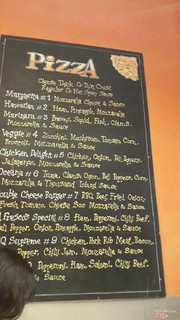 PizzA
Choose Thick Or Thin Crust
Regular Or Hot Spicy Sauce
Margarita # 1 Mozzarela Cheese & Sauce
Hawaiian # 2 Ham, Pineapple, Mozzarela
Marinara # 3 Prawn, Squid, Fish, Clams,
Mozzarela & Sauce
Veggie # 4 Zucchini, Mushroom, Tomato, Corn,
Broccoli, Mozzarella & Sauce
Chicken Delight # 5 Chicken, Onion, Bell Pepper,
Jalapenos, Mozzarella & Sauce
Oceana # 6 Tuna, Clams, Onion, Bell Pepper, Corn,
Mozzarella & Thousand Island Sauce
Double Cheese Burger # 7 BBQ Beef, Fried Onion,
Fresh Tomato, Cheese Mozzarella & Sauce
Special # 8 Ham, Pepperoni, Chilli Beef,
Bell Pepper, Onion, Pineapple,
& Sauce
Supreme # 9 Chicken, Pork Rib Meat, Bacon,
Pepper, Chilli Jam, Mozzarella & Sauce
Pepperoni, Ham, Salami, Chilli Beef,
& Sauce